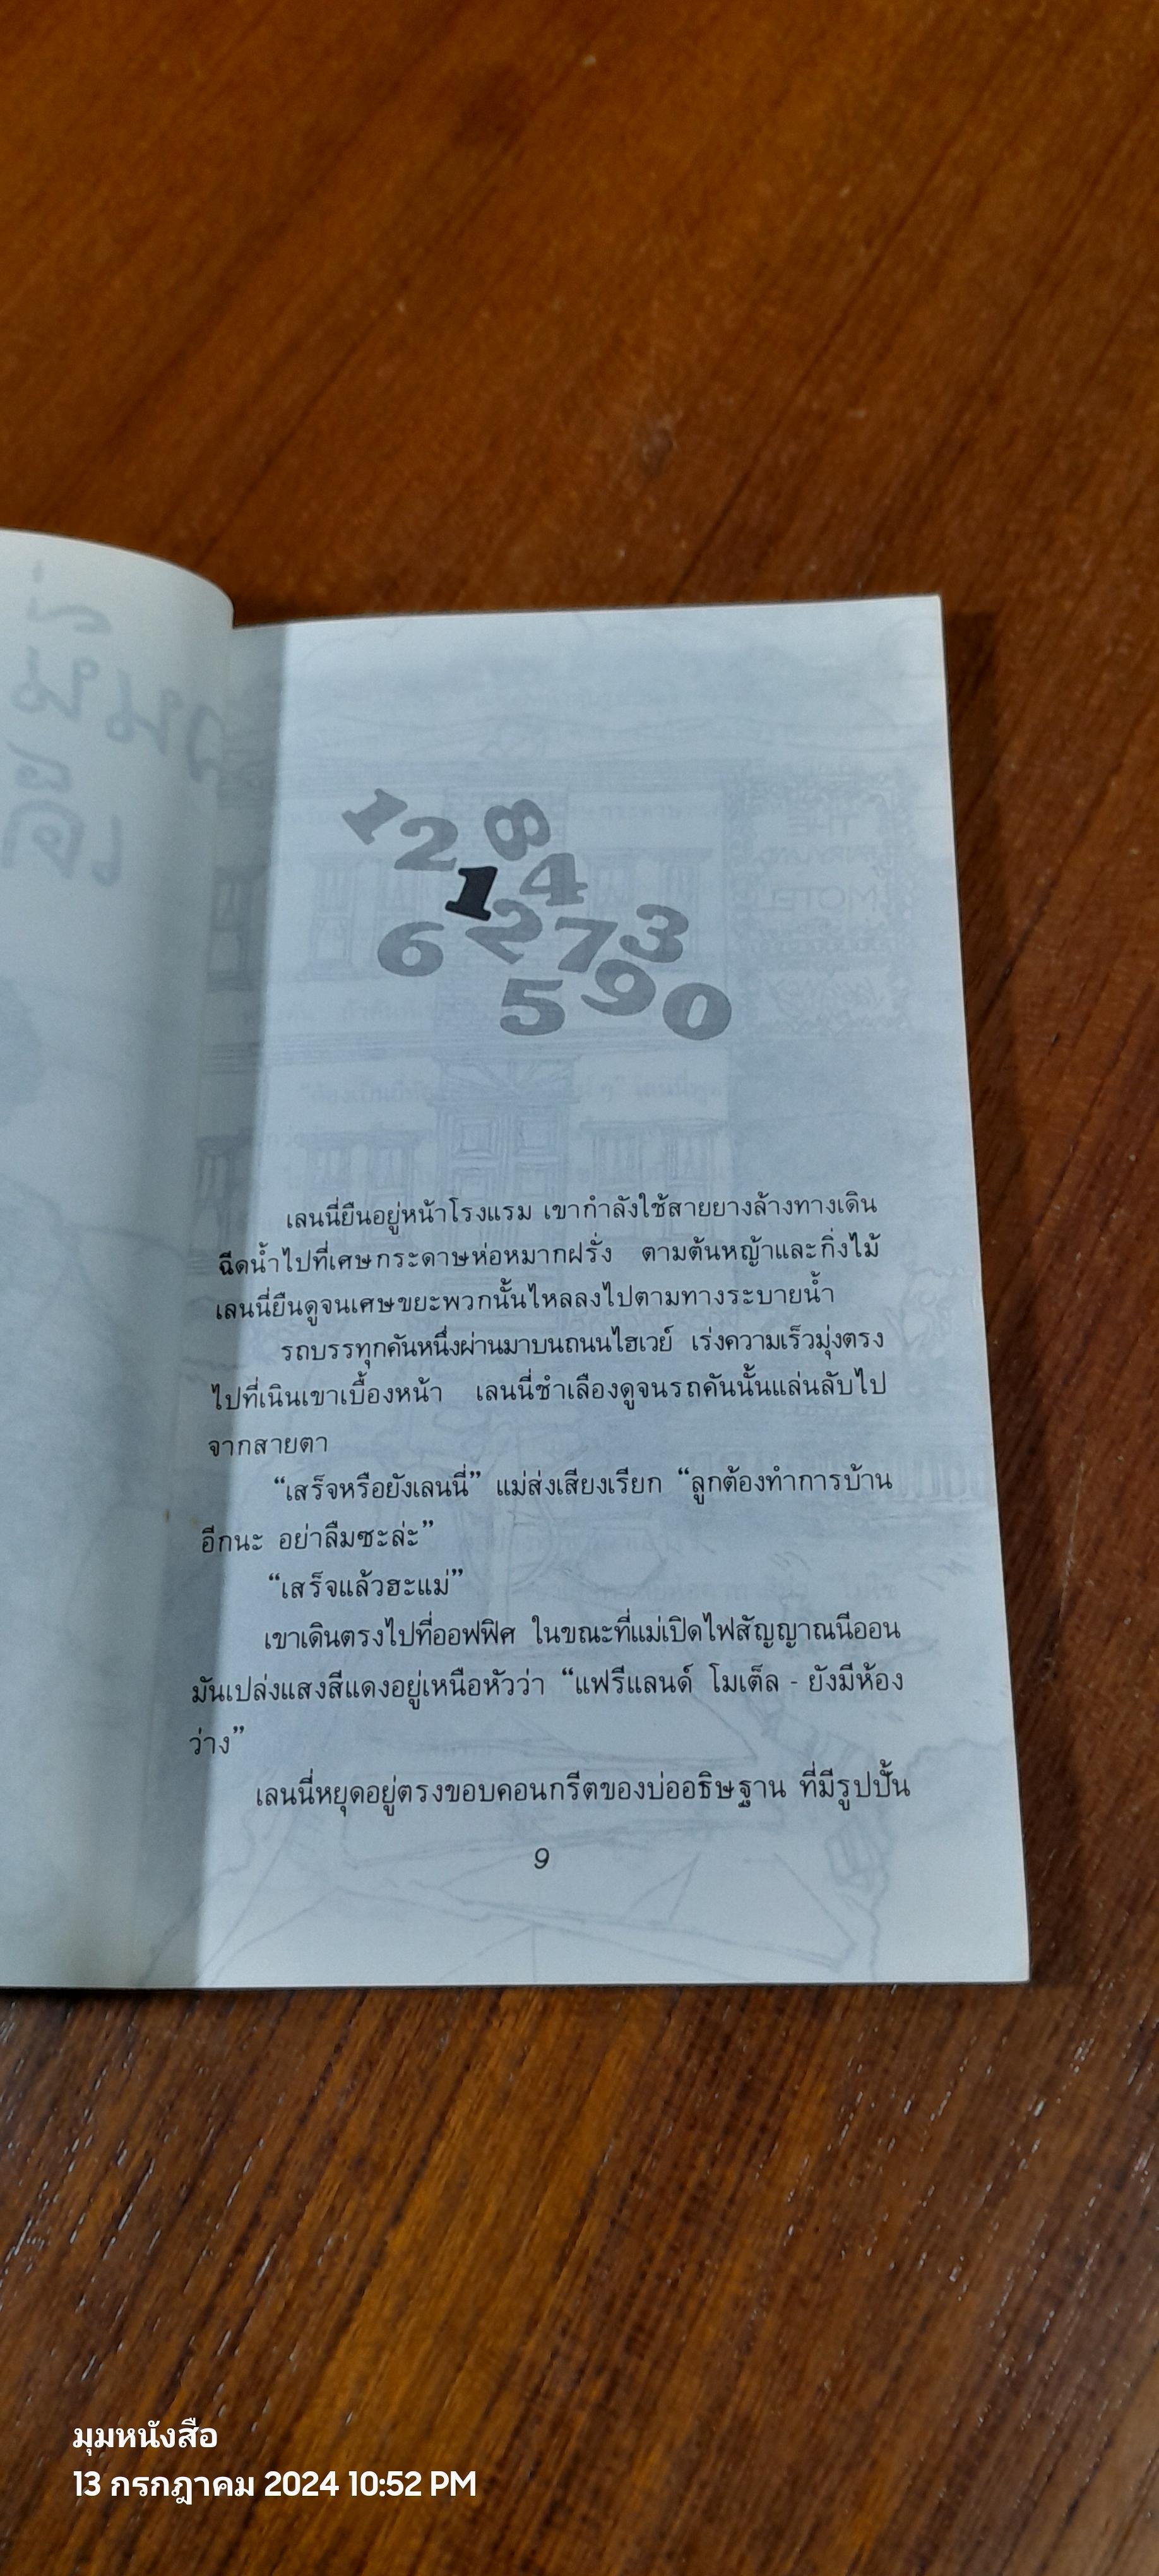 1 2 8
1 4
6 2 7 3
5 9 0
เลนนี่ยืนอยู่หน้าโรงแรม เขากำลังใช้สายยางล้างทางเดิน
ฉีดน้ำไปที่เศษกระดาษห่อหมากฝรั่ง ตามต้นหญ้าและกิ่งไม้
เลนนี่ยืนดูจนเศษขยะพวกนั้นไหลลงไปตามทางระบายน้ำ
รถบรรทุกคันหนึ่งผ่านมาบนถนนไฮเวย์ เร่งความเร็วมุ่งตรง
ไปที่เนินเขาเบื้องหน้า เลนนี่ชำเลืองดูจนรถคันนั้นแล่นลับไป
จากสายตา
“เสร็จหรือยังเลนนี่” แม่ส่งเสียงเรียก “ลูกต้องทำการบ้าน
อีกนะ อย่าลืมซะล่ะ”
“เสร็จแล้วฮะแม่”
เขาเดินตรงไปที่ออฟฟิศ ในขณะที่แม่เปิดไฟสัญญาณนีออน
มันเปล่งแสงสีแดงอยู่เหนือหัวว่า “แฟรีแลนด์ โมเต็ล - ยังมีห้อง
ว่าง”
เลนนี่หยุดอยู่ตรงขอบคอนกรีตของบ่ออธิษฐาน ที่มีรูปปั้น
9
มุมหนังสือ
13 กรกฎาคม 2024 10:52 PM